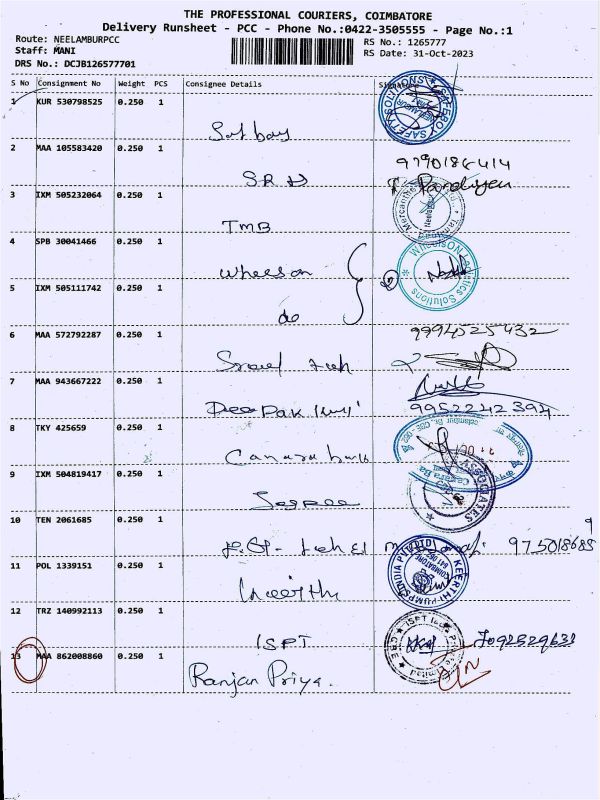 THE PROFESSIONAL COURIERS, COIMBATORE
Delivery Runsheet - PCC - Phone No.:0422-3505555 - Page No.:1
Route: NEELAMBURPCC
RS No.: 1265777
Staff: MANI
RS Date: 31-Oct-2023
DRS No.: DCJB126577701
S No Consignment No Weight PCS Consignee Details Signature
1 KUR 530798525 0.250 1
SAFETY SOLUTIONS
2 MAA 105583420 0.250 1
9790186414
S.R
Pandiyan
3 IXM 505232064 0.250 1
TMB
4 SPB 30041466 0.250 1
Wheelson
WheelsON Logistics Solutions
5 IXM 505111742 0.250 1
do
6 MAA 572792287 0.250 1
9994525432
7 MAA 943667222 0.250 1
Deepak
9952242394
8 TKY 425659 0.250 1
Canara bank
9 IXM 504819417 0.250 1
10 TEN 2061685 0.250 1
11 POL 1339151 0.250 1
Keerthi
KEERTHI PUMPS INDIA
COIMBATORE
12 TRZ 140992113 0.250 1
ISPT
13 MAA 862008860 0.250 1
Ranjan Priya.